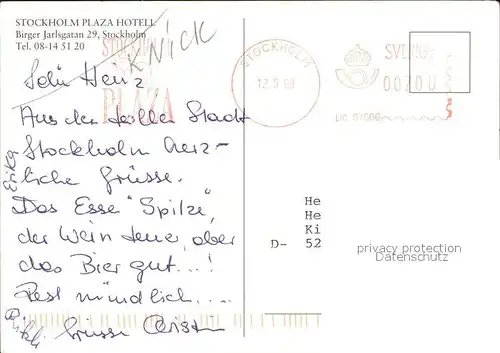 STOCKHOLM PLAZA HOTELL
Birger Jarlsgatan 29, Stockholm
Tel. 08-14 51 20
KNICK
STOCKHOLM
PLAZA
STOCKHOLM
12.5.
SVERIGE
Heinz
Aus der tollen Stadt
Stockholm herz-
liche Grüsse.
Das Esse "Spitze",
der Wein teuer, aber
das Bier gut...!
Rest mündlich....
Grüsse
He
He
Ki
D- 52
privacy protection
Datenschutz